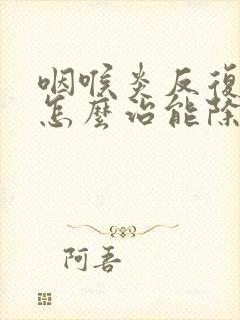 咽喉炎反復
怎麼治能除
阿吾